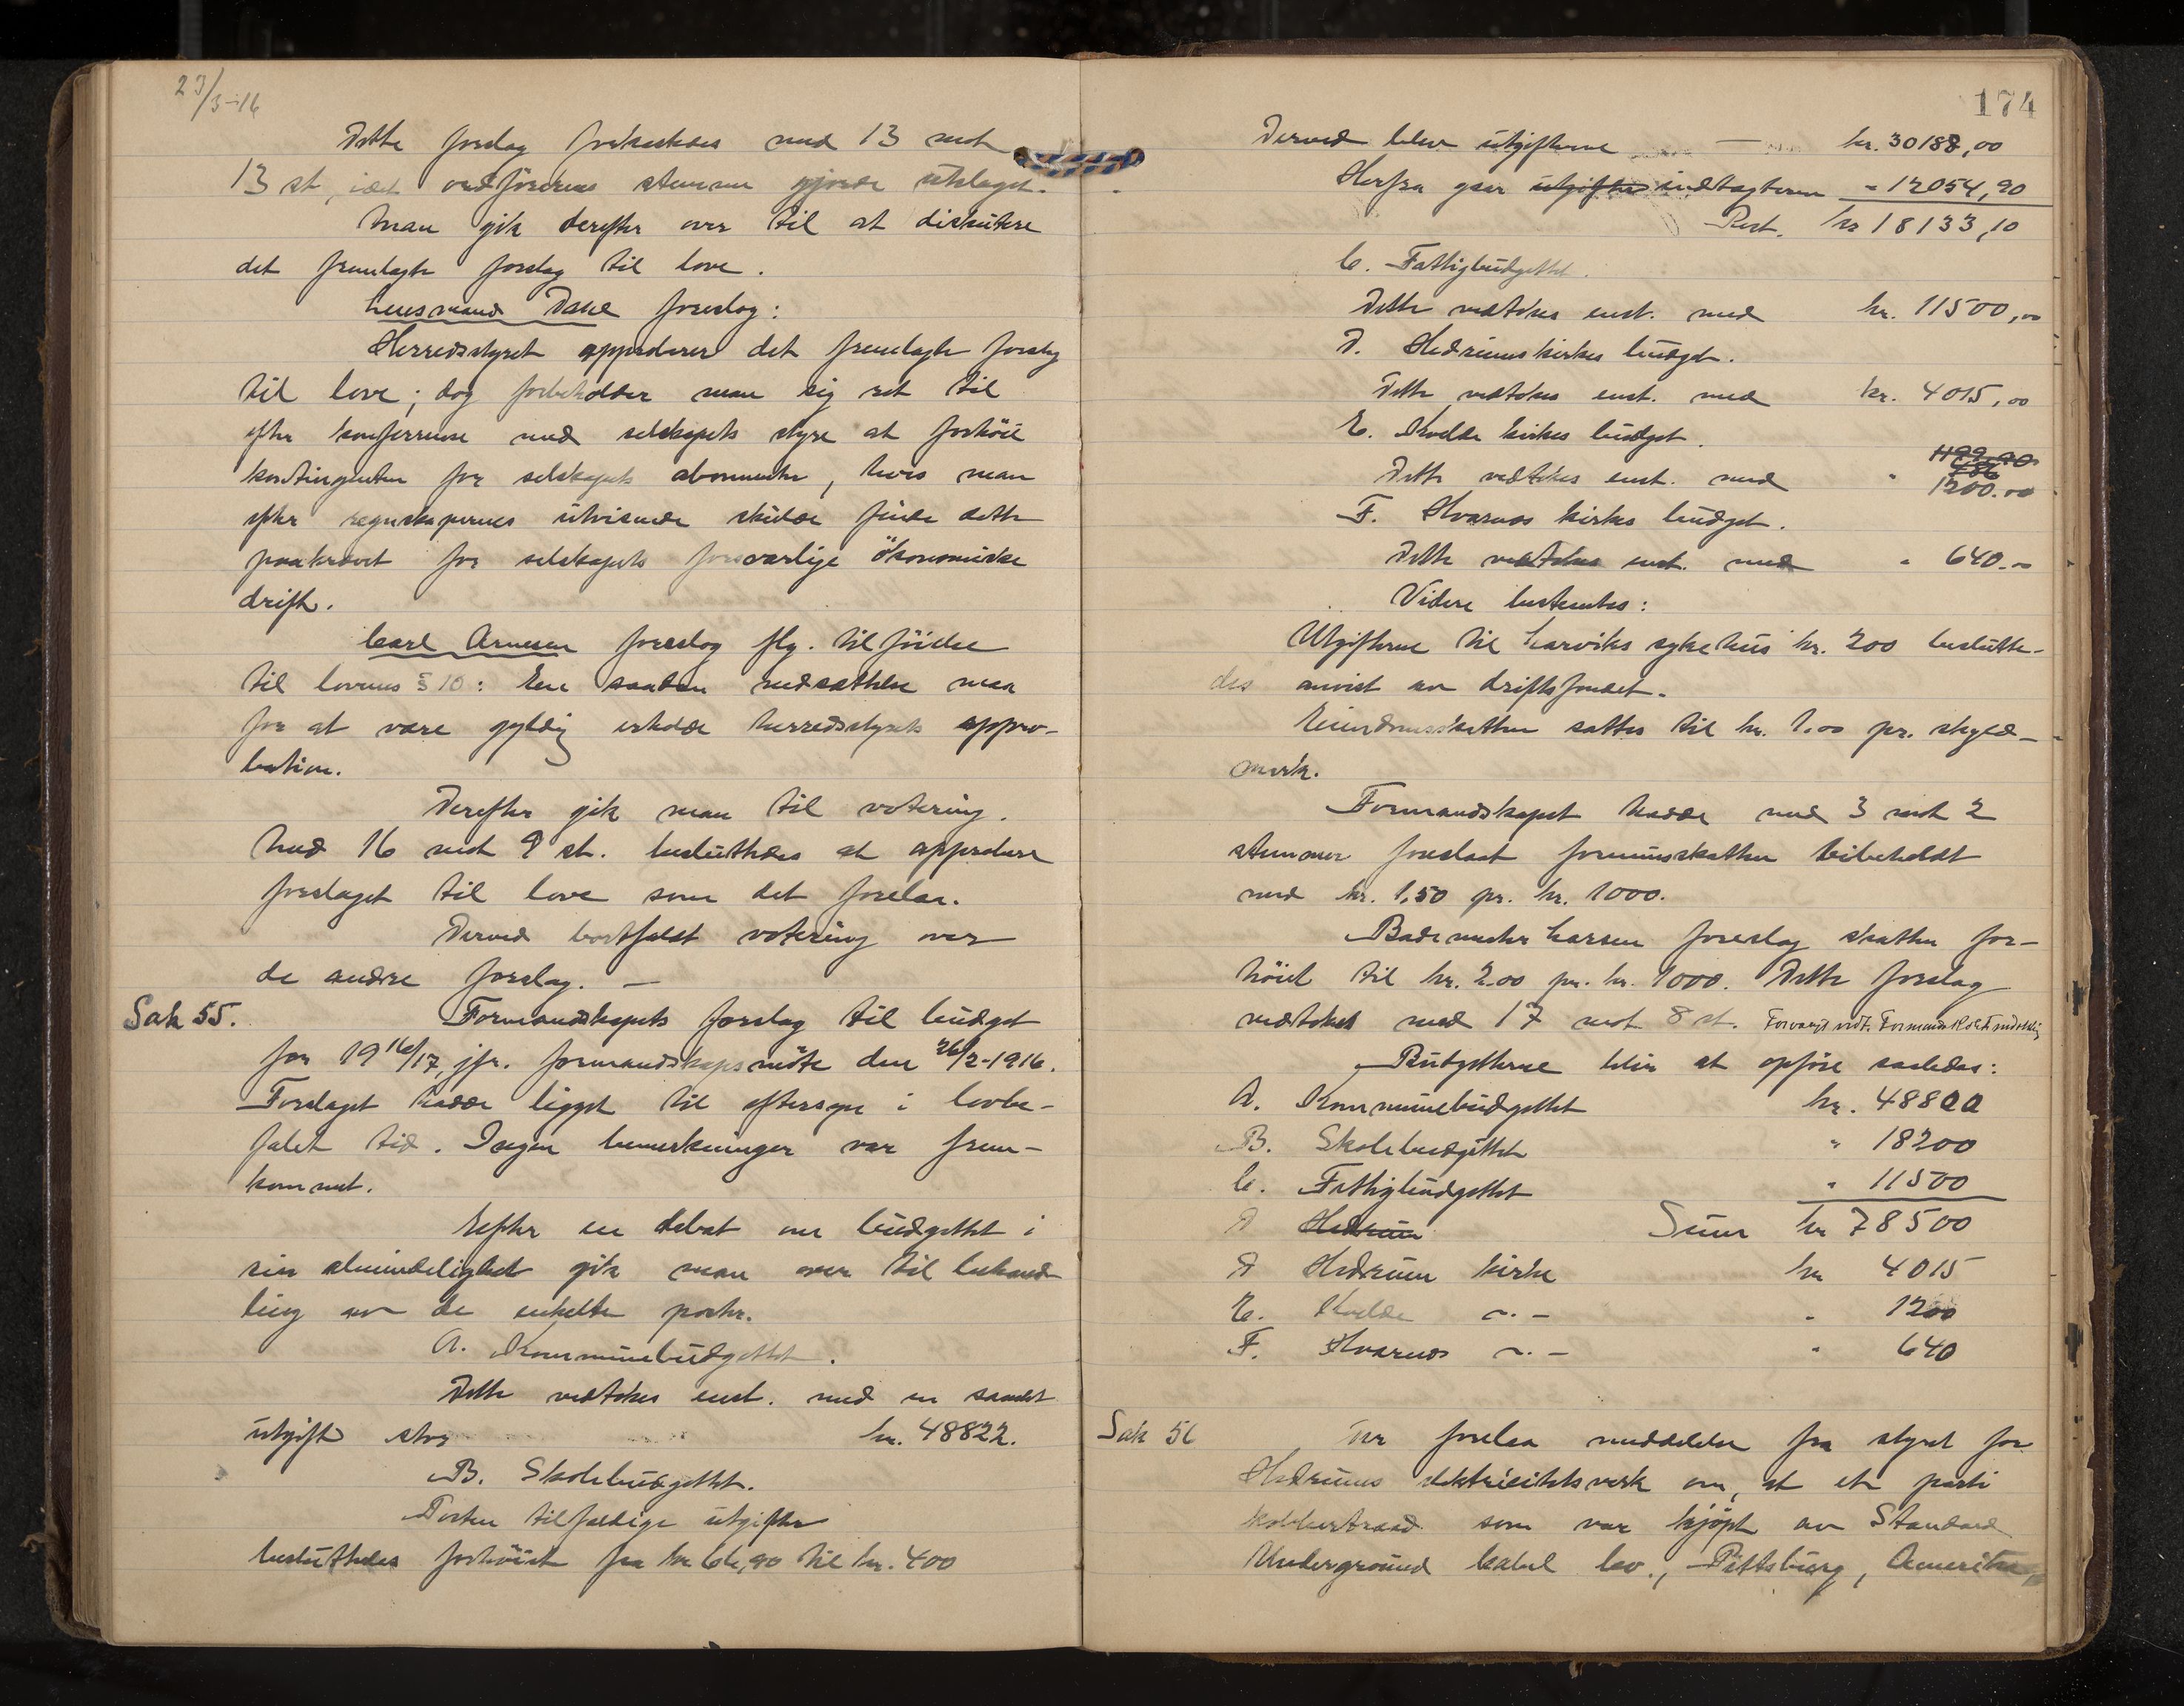 23/3-16
Dette forslag forkastedes med 13 mot
13 st, idet ordförerens stemme gjorde utslaget.
Man gik derefter over til at diskutere
det fremlagte forslag til love.
Lensmand Dahl foreslog:
Herredsstyret approberer det fremlagte forslag
til love; dog forbeholder man sig ret til
efter konferense med selskapets styre at forhöie
kontingenten for selskapets abonnenter, hvis man
efter regnskapernes utvisende skulde finde dette
paakrævet for selskapets forsvarlige ökonomiske
drift.
Carl Arnesen foreslog flg. tilföielse
til lovens § 10: En saadan nedsættelse maa
for at være gyldig erholde herredsstyrets appro-
bation.
Derefter gik man til votering.
Med 16 mot 9 st. besluttedes at approbere
forslaget til love som det forelaa.
Derved bortfaldt votering over
de andre forslag. —
Sak 55. Formandskapets forslag til budget
for 1916/17, jfr. formandskapsmöte den 26/2-1916.
Forslaget hadde ligget til eftersyn i lovbe-
falet tid. Ingen bemerkninger var frem-
kommet.
Efter en debat om budgettet i
sin almindelighet gik man over til behand
ling av de enkelte poster.
A. Kommunebudgettet.
Dette vedtokes enst. med en samlet
utgift stor kr. 48822.
B. Skolebudgettet.
Posten tilfældige utgifter
besluttedes forhöiet fra kr. 66,90 til kr. 400
174
Derved blev utgifterne — kr. 30188,00
Herfra gaar utgifter indtægterne " 12054,90
Rest. kr 18133,10
C. Fattigbudgettet.
Dette vedtokes enst. med kr. 11500,00
D. Hedrums kirkes budget.
Dette vedtokes enst. med kr. 4015,00
E. Kvelde kirkes budget.
1199,90
786
Dette vedtokes enst. med " 1200.00
F. Hvarnes kirkes budget.
Dette vedtokes enst. med " 640.00
Videre bestemtes:
Utgifterne til Larviks sykehus kr. 200 beslutte-
des anvist av driftsfondet.
Eiendomsskatten sattes til kr. 1.00 pr. skyld-
mark.
Formandskapet hadde med 3 mot 2
stemmer foreslaat formuesskatten beibeholdt
med kr. 1,50 pr. kr. 1000.
Bademester Larsen foreslog skatten for-
höiet til kr. 2.00 pr. kr. 1000. Dette forslag
vedtokes med 17 mot 8 st.
Budgetterne blir at opföre saaledes:
A. Kommunebudgettet kr. 48800
B. Skolebudgettet " 18200
C. Fattigbudgettet " 11500
D Hedrum Sum kr 78500
D Hedrum kirke kr 4015
E. Kvelde ~.- " 1200
F. Hvarnes ~.- " 640
Sak 56 Der forelaa meddelelse fra styret for
Hedrums elektricitetsverk om, at et parti
kobbertraad som var kjöpt av Standard
Underground Cabel Co., Pittsburg, Amerika,